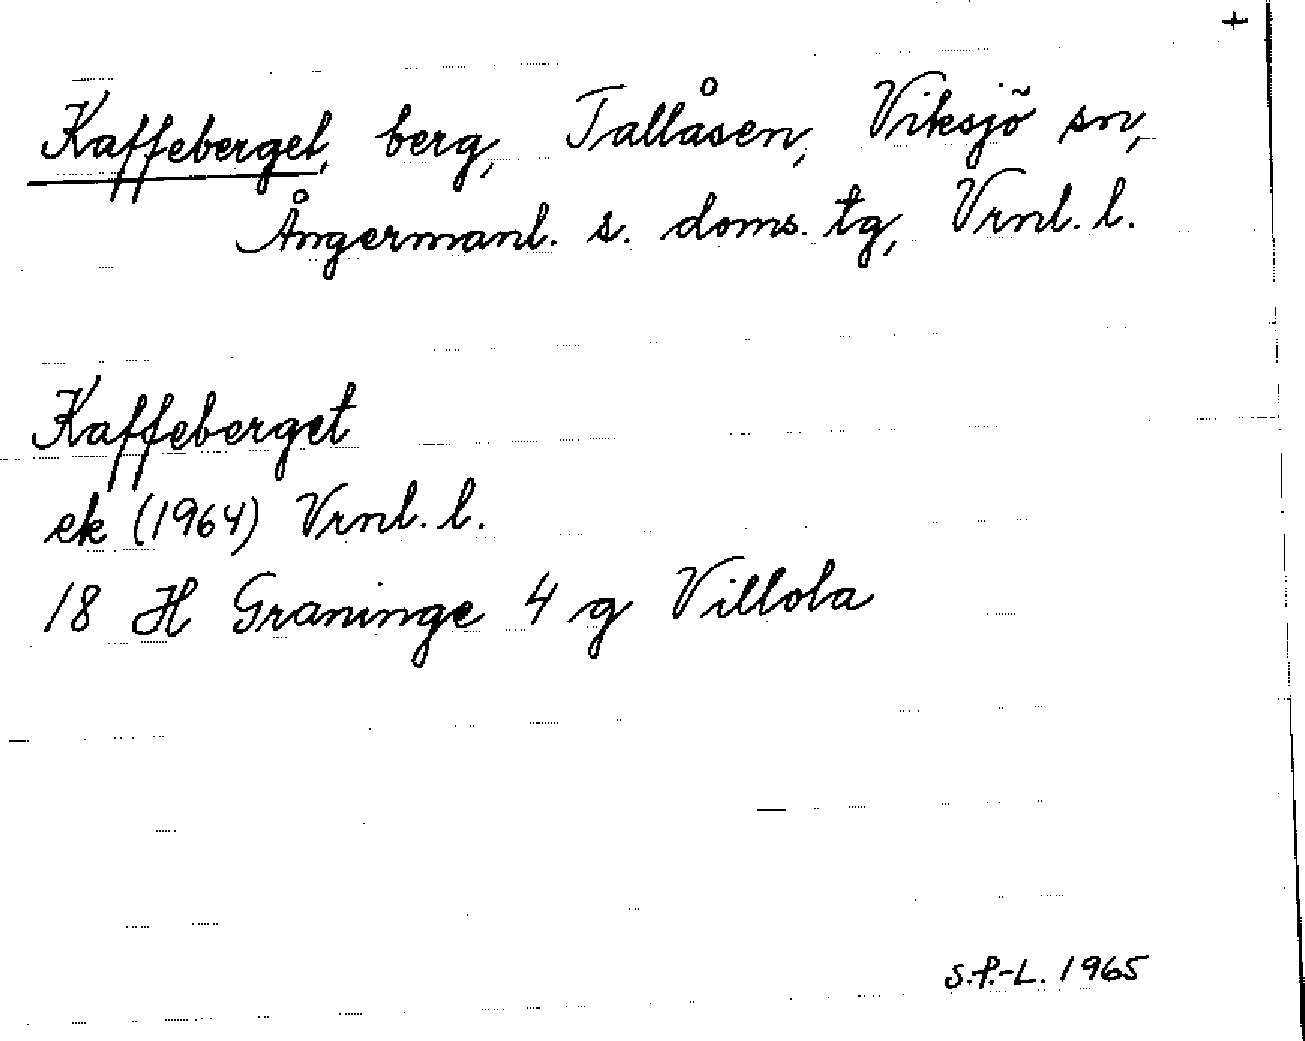 +
Kaffeberget, berg, Tallåsen, Viksjö sn,
Ångermanl. s. doms. tg, Vrnl. l.
Kaffeberget
ek (1964) Vrnl. l.
18 H Graninge 4 g Villola
S.P.-L. 1965